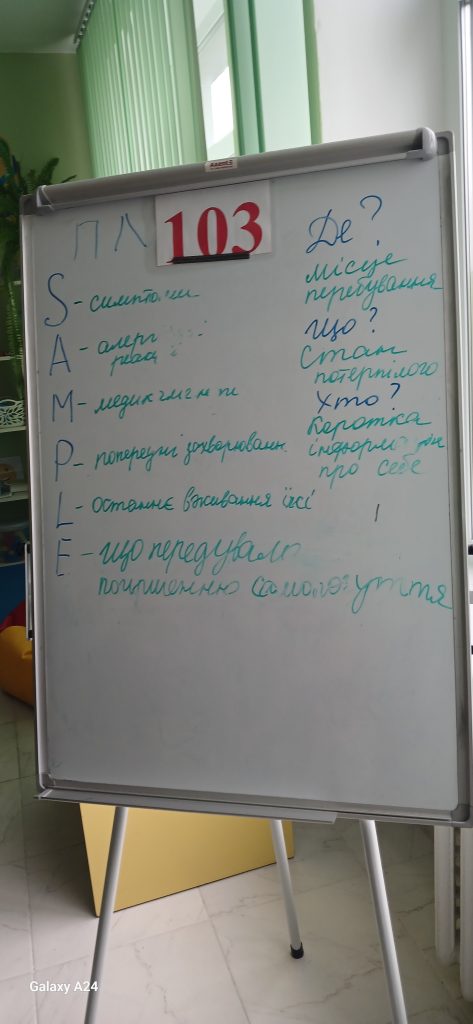 ПЛ 103
S - симптоми
A -
M - медикаменти
P - попередні захворюванн
L - останнє вживання їжі
E - що передувало
погіршенню самопочуття
Де?
місце
перебування
Що?
Стан
потерпілого
Хто?
Коротка
про себе
Galaxy A24